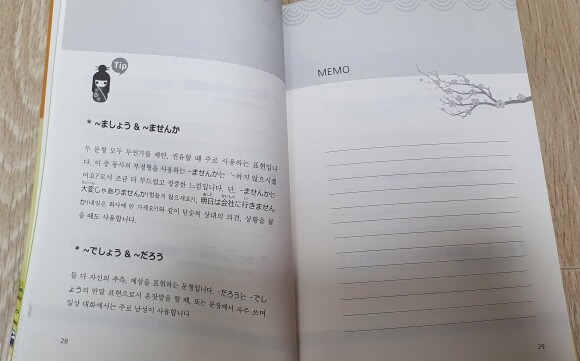 Tip
* ~ましょう & ~ませんか
두 문형 모두 무언가를 제안, 권유할 때 주로 사용하는 표현입니
다. 이 중 동사의 부정형을 사용하는 ~ませんか는 '~하지 않으시겠
어요?'로서 조금 더 부드럽고 정중한 느낌입니다. 단, ~ませんか는
大変じゃありませんか(힘들지 않으세요?), 明日は会社に行きません
か(내일은 회사에 안 가세요?)와 같이 단순히 상대의 의견, 상황을 물
을 때도 사용합니다.
* ~でしょう & ~だろう
둘 다 자신의 추측, 예상을 표현하는 문형입니다. ~だろう는 ~でし
ょう의 반말 표현으로서 혼잣말을 할 때, 또는 문장에서 자주 쓰며
일상 대화에서는 주로 남성이 사용합니다.
28
MEMO
29